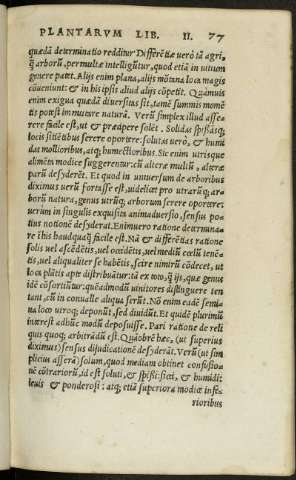 PLANTARVM LIB. II. 77
quædã determinatio redditur Differẽtiæ uerò tã agri,
q̃ arborũ, permultæ intelligũtur, quod etiã in uitium
genere patet. Alijs enim plana, alijs mõtana loca magis
cõueniunt: & in his ipsis aliud alijs cõpetit. Quamuis
enim exigua quædã diuersitas sit, tamẽ summis momẽ
tis potest immutare naturã. Verũ simplex illud asse=
rere facile est, ut & præapere solẽt. Solidas spissasq;
locis sitiẽtibus serere oportere: solutas uerò, & humi
das mollioribus, atq; humectioribus. Sic enim utrisque
alimẽtũ modice suggerentur: cũ alteræ multũ, alteræ
parũ desyderẽt. Et quod in uniuersum de arboribus
diximus uerũ fortasse est, uidelicet pro utrarũq; ar=
borũ natura, genus utrũq; arborum serere oportere:
uerùm in singulis exquisita animaduersio, sensus po=
tius notionẽ desyderat. Enimuero ratione determina=
re ihis haudquaq̃ facile est. Nã & differẽtias ratione
solis uel ascẽdẽtis, uel occidẽtis, uel mediũ cœlũ tenẽ=
tis, uel aliqualiter se habẽtis, scire nimirũ cõdecet, ut
loca plãtis apte distribuãtur: tã ex eo, q̃ ijs, quæ genus
idẽ cõsortiũtur. quæadmodũ uinitores distinguere ten
tant, cũ in conualle aliqua serũt. Nõ enim eadẽ semi=
na loco utroq; deponũt, sed diuidũt. Et quidẽ plurimũ
interest adhuc modũ deposuisse. Pari ratione de reli
quis quoq; arbitrãdũ est. Quãobrẽ hæc, (ut superius
diximus) sensus diiudicationẽ desyderãt. Verũ (ut sim
plicius asserã) solum, quod mediam obtinet consistẽtiã
uẽ cõtrariorũ, id est soluti, & spissi: sicci, & humidi:
leuis & ponderosi: atq; etiã superiora modice infe=
rioribus